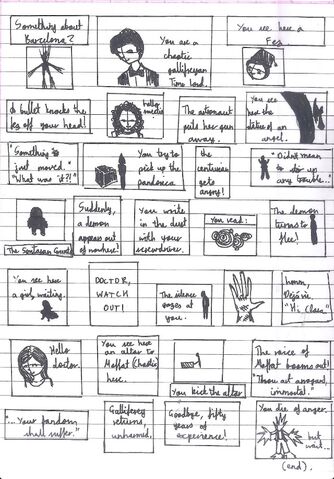 Something about
Barcelona?
You are a
chaotic
gallifreyan
Time Lord.
You see here a
Fez
A bullet knocks the
fez off your head!
hello,
sweetie
The astronaut
puts her gun
away.
You see
here the
statue of an
angel.
"Something
just moved."
"What was it?!"
You try to
pick up the
pandorica
the
centurian
gets
angry!
"Didn't mean
to stir up
any trouble..."
The Sontaran Guards
Suddenly,
a demon
appears out
of nowhere!
You write
in the dust
with your
screwdriver.
You read:
The demon
turns to
flee!
You see here
a girl, waiting.
DOCTOR,
WATCH
OUT!
The silence
gazes at
you.
hmm,
Déjà vu.
"Hi, Clara."
Hello
doctor.
You see here
an altar to
Moffat (Chaotic)
here.
You kick the altar
The voice of
Moffat booms out!
"Thou art arrogant,
immortal."
"...Your fandom
shall suffer."
Gallifrey
returns,
unharmed.
Goodbye, fifty
years of
experience!
You die of anger
but
wait...
(end).